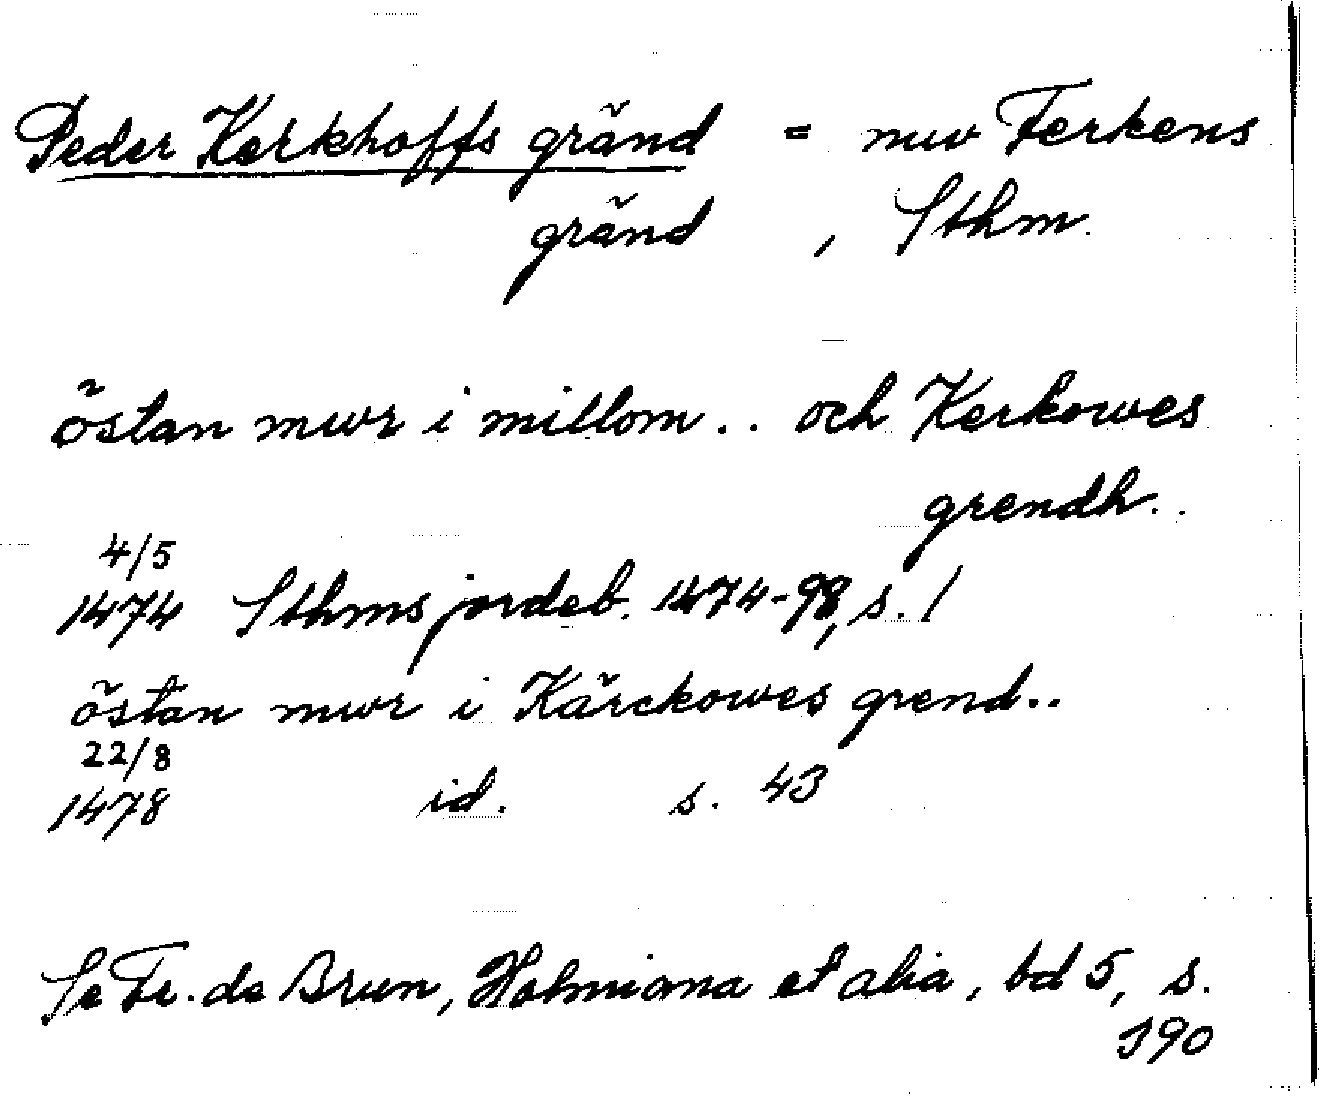 Peder Kerkhoffs gränd = nuv Ferkens
gränd , Sthm.
östan mwr i millom.. och Kerkowes
grendh..
4/5
1474 Sthms jordeb. 1474-98, s. 1
östan mwr i Kärckowes grend..
22/8
1478 id. s. 43
Se Fr. de Brun, Holmiana et alia, bd 5, s.
190